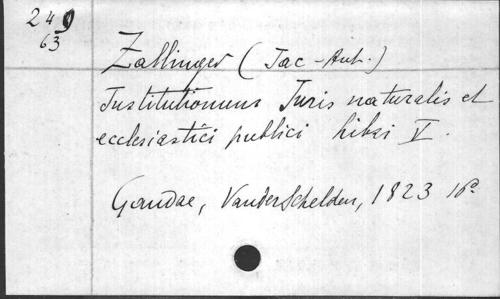 249
63
Zallinger (Jac-Ant.)
Institutionum Juris naturalis et
ecclesiastici publici libri V.
Gandae, VanderSchelden, 1823 16°